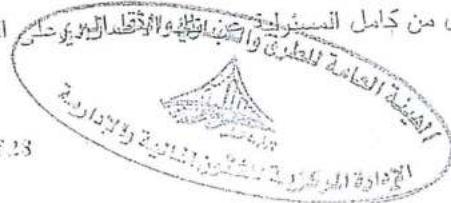 من كامل المسئولية عن
على
الهيئة العامة للطرق والكباري والنقل البري
الإدارة المركزية للشئون المالية والإدارية